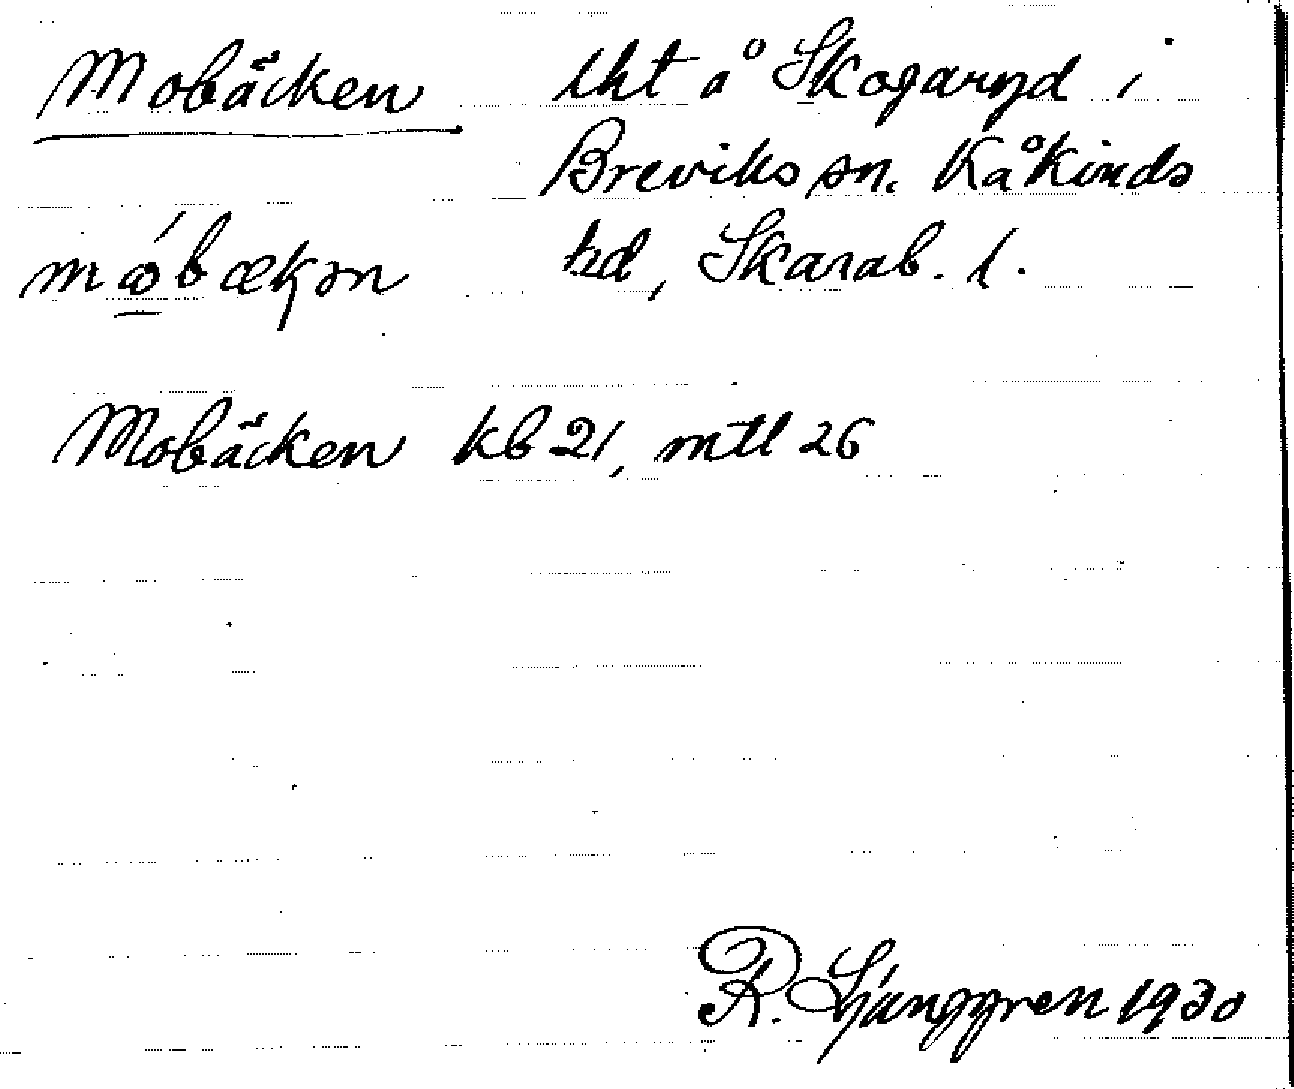 Mobäcken lht å Skogaryd i
Breviks sn. Kåkinds
hd, Skarab. l.
Mobäcken kb 21, mtl 26
R. Ljunggren 1930